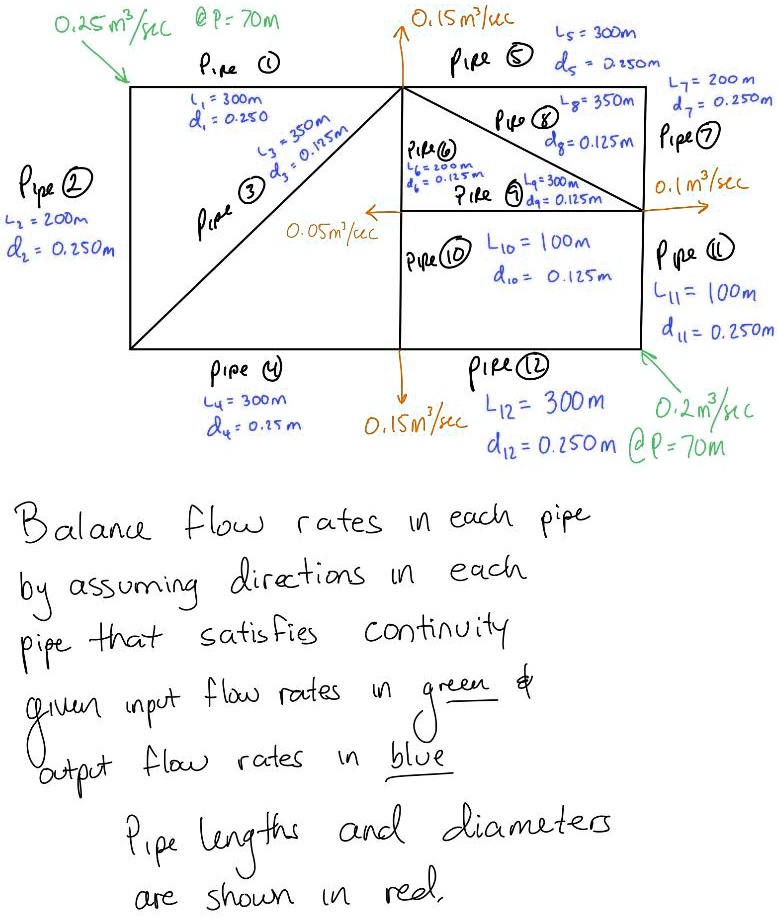 0.25m³/sec @P = 70m
0.15m³/sec
Pipe ①
L₁ = 300m
d₁ = 0.250
Pipe ⑤
L₅ = 300m
d₅ = 0.250m
L₇ = 200m
d₇ = 0.250m
Pipe ⑦
Pipe ⑧
L₈ = 350m
d₈ = 0.125m
Pipe ②
L₂ = 200m
d₂ = 0.250m
Pipe ③
L₃ = 350m
d₃ = 0.125m
Pipe ⑥
L₆ = 200m
d₆ = 0.125m
Pipe ⑨
L₉ = 300m
d₉ = 0.125m
0.1m³/sec
0.05m³/sec
Pipe ⑩
L₁₀ = 100m
d₁₀ = 0.125m
Pipe ⑪
L₁₁ = 100m
d₁₁ = 0.250m
Pipe ④
L₄ = 300m
d₄ = 0.25m
0.15m³/sec
Pipe ⑫
L₁₂ = 300m
d₁₂ = 0.250m
0.2m³/sec
@P = 70m
Balance flow rates in each pipe
by assuming directions in each
pipe that satisfies continuity
given input flow rates in green &
output flow rates in blue
Pipe lengths and diameters
are shown in red.